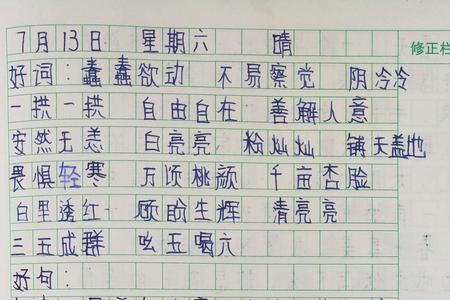 7月13日 星期六 晴
修正栏
好词：蠢蠢欲动 不易察觉 阴冷冷
一拱一拱 自由自在 善解人意
安然无恙 白亮亮 粉灿灿 铺天盖地
畏惧轻寒 万顷桃颜 千亩杏脸
白里透红 顾盼生辉 清亮亮
三五成群 吆五喝六
好句：